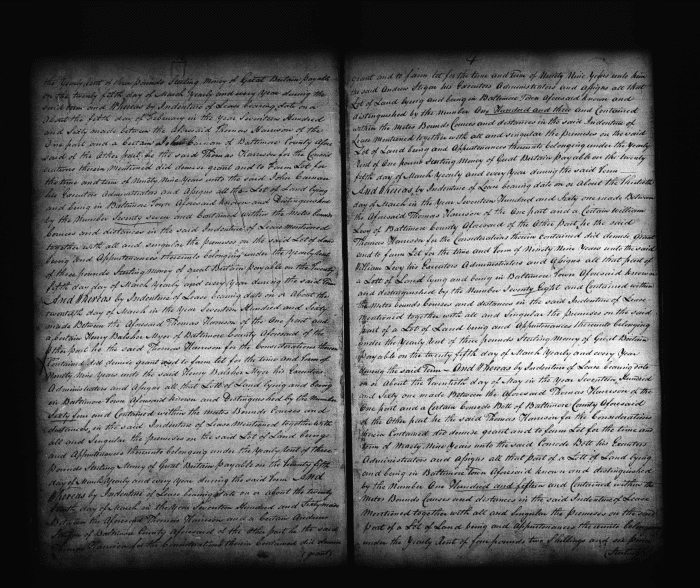 the Yearly Rent of three pounds Sterling Money of Great Britain payable
on the twenty fifth day of March Yearly and every Year during the
said term and Whereas by Indenture of Lease bearing date on or
about the fifth day of February in the Year Seventeen Hundred
and Sixty made between the aforesaid Thomas Harrison of the
One part and a Certain John Carnan of Baltimore County afore
said of the Other part he the said Thomas Harrison for the Consid
erations therein Mentioned did demise grant and to Farm Let for
the time and term of Ninety Nine Years unto the said John Carnan
his Executors Administrators and Assigns all that Lot of Land lying
and being in Baltimore Town Aforesaid known and Distinguished
by the Number Twenty seven and Contained within the Metes bounds
Courses and distances in the said Indenture of Lease Mentioned
together with all and singular the premises on the said Lot of Land
being and Appurtenances thereunto belonging under the Yearly Rent
of three pounds Sterling Money of great Britain payable on the Twenty
fifth day of March Yearly and every Year during the said Term
And Whereas by Indenture of Lease bearing date on or About the
twentieth day of March in the Year Seventeen Hundred and Sixty
made Between the Aforesaid Thomas Harrison of the One part and
a Certain Henry Balsher Myer of Baltimore County Aforesaid of the
Other part he the said Thomas Harrison for the Considerations therein
Contained did demise grant and to farm let for the time and Term of
Ninety Nine Years unto the said Henry Balsher Myer his Executors
Administrators and Assigns all that Lott of Land lying and being
in Baltimore Town Aforesaid known and Distinguished by the Number
Sixty four and Contained within the Metes Bounds Courses and
distances in the said Indenture of Lease Mentioned together with
all and Singular the premises on the said Lot of Land being
and Appurtenances thereunto belonging under the Yearly Rent of three
pounds Sterling Money of Great Britain payable on the twenty fifth
day of March Yearly and every Year during the said Term And
Whereas by Indenture of Lease bearing date on or about the twenty
day of March in the Year Seventeen Hundred and Sixty made
Between the Aforesaid Thomas Harrison and a Certain Andrew
Stigar of Baltimore County Aforesaid of the Other part he the said
Thomas Harrison for the Considerations therein Contained did demise
grant
4
grant and to farm let for the time and term of Ninety Nine Years unto him
the said Andrew Stigar his Executors Administrators and Assigns all that
Lot of Land lying and being in Baltimore Town Aforesaid known and
distinguished by the Number One Hundred and three and Contained
within the Metes Bounds Courses and distances in the said Indenture of
Lease Mentioned together with all and singular the premises on the said
Lot of Land being and Appurtenances thereunto belonging under the Yearly
Rent of One pound Sterling Money of Great Britain payable on the twenty
fifth day of March Yearly and every Year during the said Term
And Whereas by Indenture of Lease bearing date on or About the Thirtieth
day of March in the Year Seventeen Hundred and Sixty one made Between
the Aforesaid Thomas Harrison of the One part and a Certain William
Levy of Baltimore County Aforesaid of the Other Part he the said
Thomas Harrison for the Considerations therein contained did demise Grant
and to farm Let for the time and Term of Ninety Nine Years unto the said
William Levy his Executors Administrators and Assigns all that part of
a Lott of Land lying and being in Baltimore Town Aforesaid known
and distinguished by the Number Seventy Eight and Contained within
the Metes bounds Courses and distances in the said Indenture of Lease
Mentioned together with all and Singular the Premises on the said
part of a Lot of Land being and Appurtenances thereunto belonging
under the Yearly Rent of three pounds Sterling Money of Great Britain
payable on the twenty fifth day of March Yearly and every Year
during the said Term And Whereas by Indenture of Lease bearing date
on or About the Twentieth day of May in the Year Seventeen Hundred
and Sixty one made Between the Aforesaid Thomas Harrison of the
One part and a Certain Bott of Baltimore County Aforesaid
of the Other Part he the said Thomas Harrison for the Considerations
therein Contained did demise grant and to farm Let for the time and
Term of Ninety Nine Years unto the said Bott his Executors
Administrators and Assigns all that Part of a Lott of Land lying
and being in Baltimore Town Aforesaid known and distinguished
by the Number One Hundred and fifteen and Contained within the
Metes Bounds Courses and distances in the said Indenture of Lease
Mentioned together with all and Singular the Premises on the said
Part of a Lot of Land being and Appurtenances thereunto belonging
under the Yearly Rent of four pounds two Shillings and six pence
Sterling